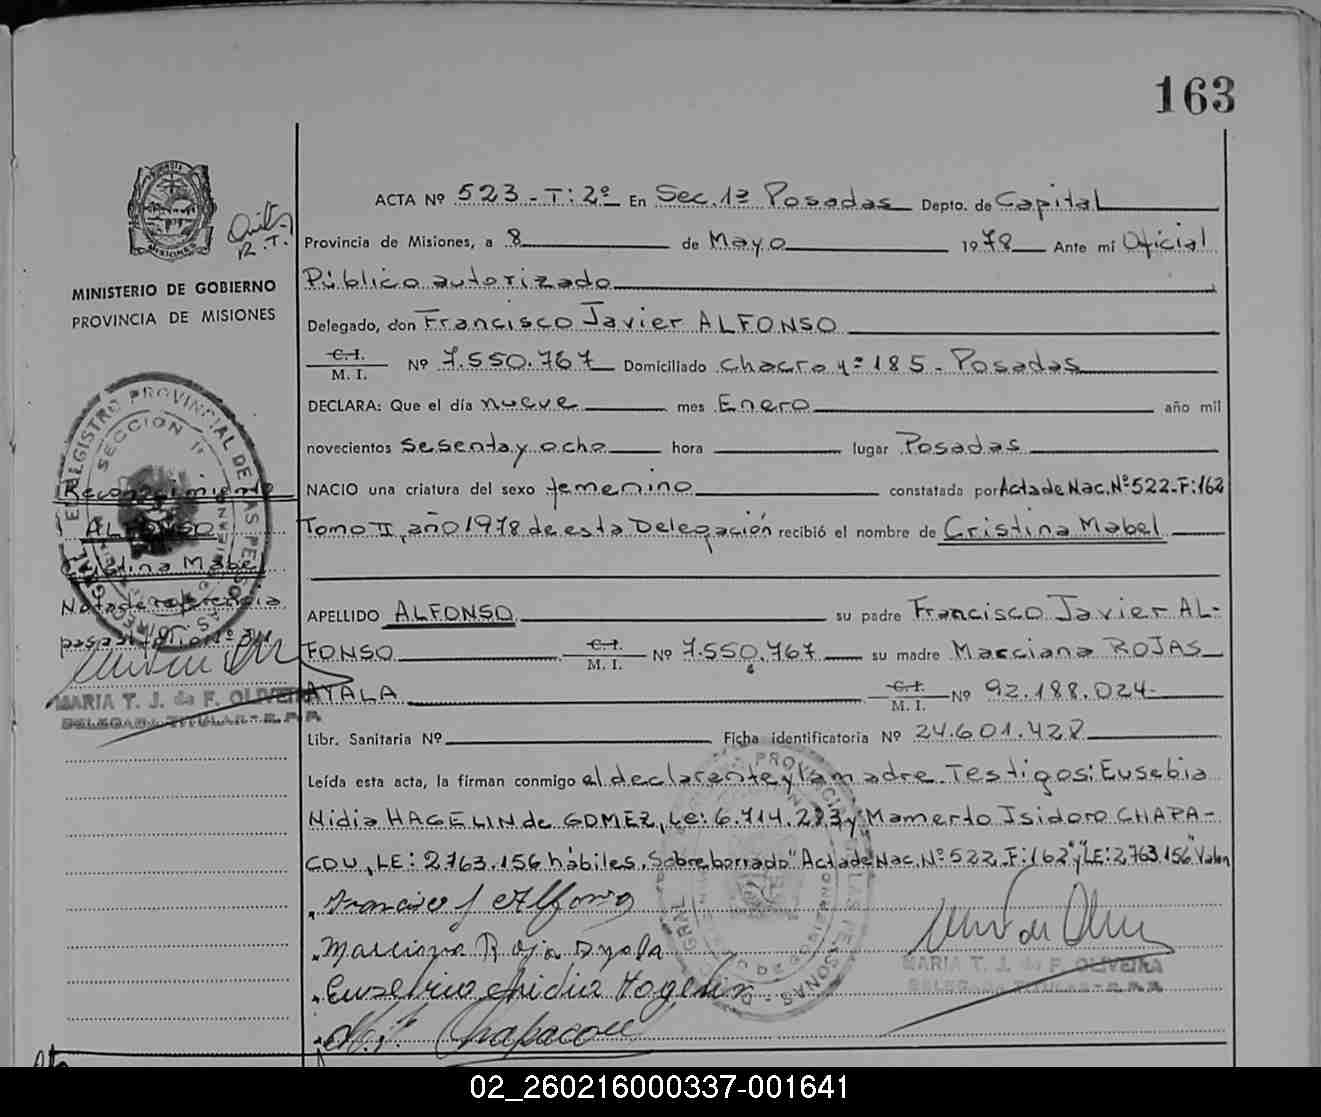 163
ACTA Nº 523 - T: 2º En Sec. 1ª Posadas Depto. de Capital
Provincia de Misiones, a 8 de Mayo 1978 Ante mí Oficial
Público autorizado
MINISTERIO DE GOBIERNO
PROVINCIA DE MISIONES
Delegado, don Francisco Javier ALFONSO
C. I.
M. I. Nº 7.550.767 Domiciliado Chacra 185 - Posadas
DECLARA: Que el día nueve mes Enero año mil
novecientos sesenta y ocho hora lugar Posadas
NACIO una criatura del sexo femenino constatada por Acta de Nac. Nº 522 - F: 162
Tomo II, año 1978 de esta Delegación recibió el nombre de Cristina Mabel
Reconocimiento
ALFONSO
Cristina Mabel
Nota de referencia
REGISTRO PROVINCIAL DE LAS PERSONAS
SECCION
APELLIDO ALFONSO su padre Francisco Javier AL-
FONSO C. I.
M. I. Nº 7.550.767 su madre Marciana ROJAS
AYALA C. I.
M. I. Nº 92.188.024
MARIA T. J. de F. OLIVEIRA
DELEGADA TITULAR - R. P. P.
Libr. Sanitaria Nº Ficha identificatoria Nº 24.601.428
Leída esta acta, la firman conmigo el declarante y la madre. Testigos: Eusebia
Nidia HAGELIN de GOMEZ, Le: 6.714.283 y Mamerto Isidoro CHAPA-
COU, LE: 2.763.156 hábiles. Sobreborrado "Acta de Nac. Nº 522 - F: 162" y "LE: 2.763.156" Valen
Francisco J Alfonso
Marciana Roja Ayala
Eusebia Nidia Hagelin
M. I. Chapacou
MARIA T. J. de F. OLIVEIRA
DELEGADA TITULAR - R. P. P.
02_260216000337-001641